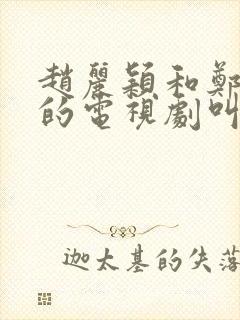 趙麗穎和鄭
的電視劇叫
迦太基的失落